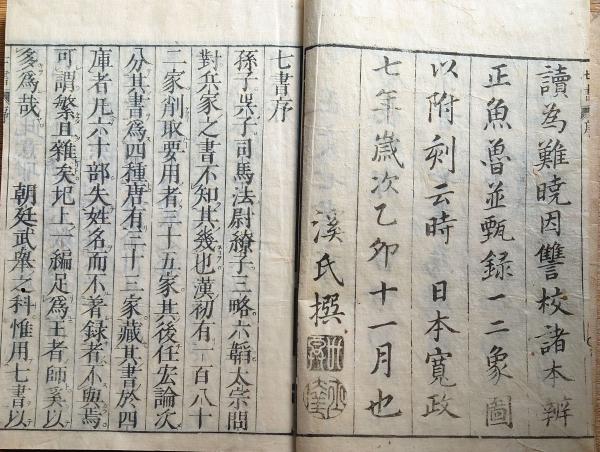 讀為難曉因讐校諸本辨
正魚魯並甄録一二象圖
以附刻云時 日本寛政
七年歲次乙卯十一月也
溪氏撰
七書序
孫子吳子司馬法尉繚子三略六韜太宗問
對兵家之書不知其幾也漢初有一百八十
二家削取要用者三十五家其後任宏論次
分其書爲四種唐有二十三家藏其書於四
庫者凡六十部失姓名而不著録者不與焉
可謂繁且雜矣圯上一編足爲王者師奚以
多爲哉 朝廷武舉之科惟用七書以